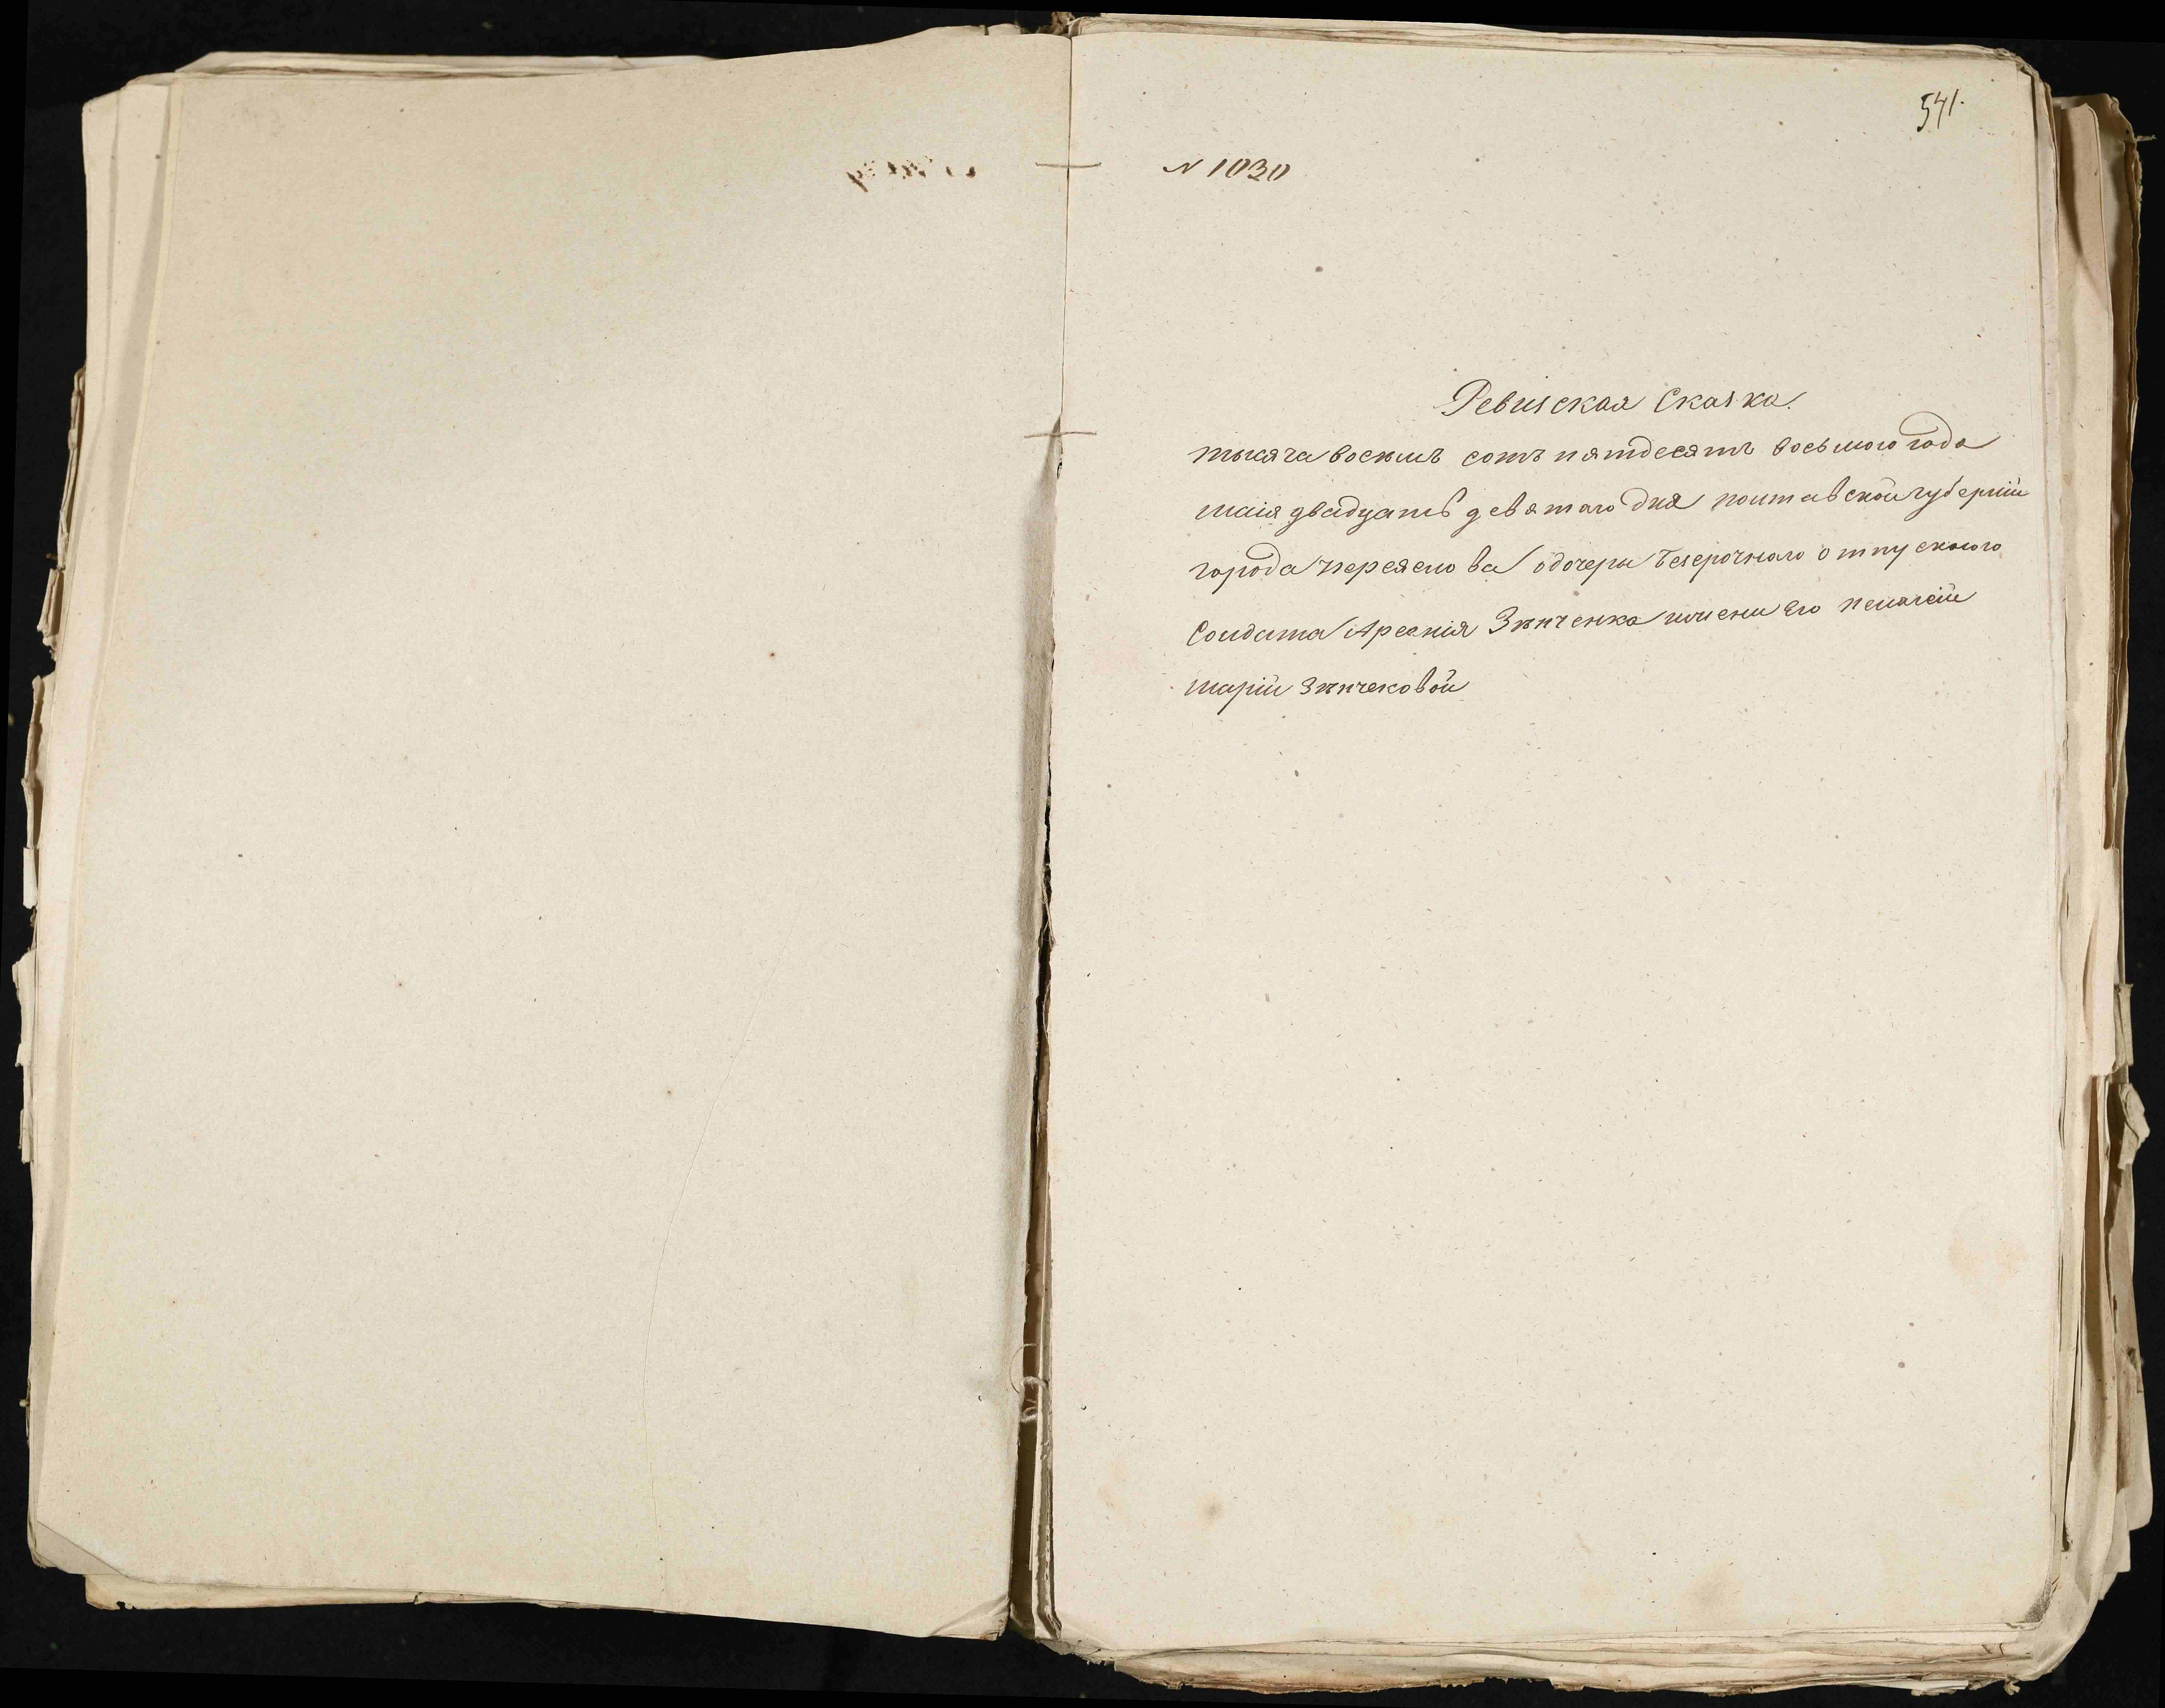 541.
N 1030
Ревизская Сказка.
тысяча восемъ сотъ пятдесятъ восьмого года
маія двадцать девятаго дня полтавской губерніи
города переяслова одочеры безсрочнаго отпускного
Солдата Арсенія Зѣнченка имени его пелагеіи
маріи Зѣнчековой